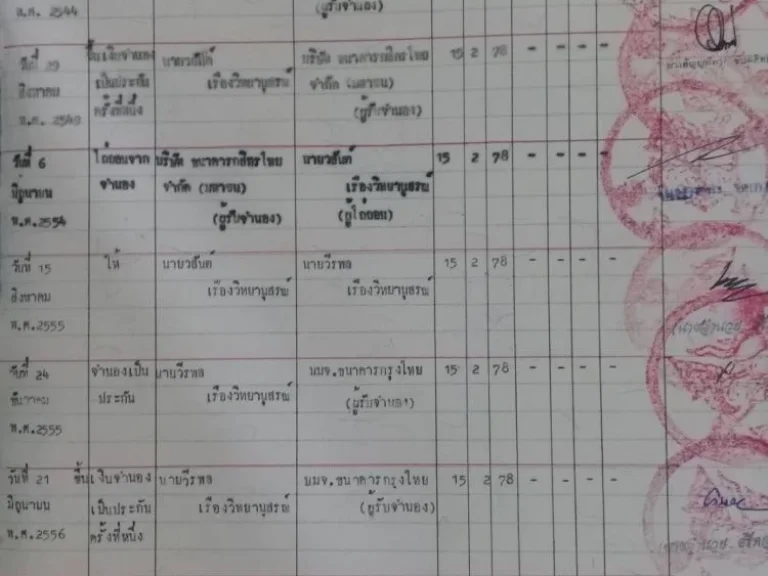 พ.ศ. 2544 (ผู้รับจำนอง)
วันที่ 29 ขึ้นเงินจำนอง นายวสันต์ บริษัท ธนาคารกสิกรไทย 15 2 78 - - - -
สิงหาคม เป็นประกัน เรืองวิทยานุสรณ์ จำกัด (มหาชน)
พ.ศ. 2549 ครั้งที่หนึ่ง (ผู้รับจำนอง)
วันที่ 6 ไถ่ถอนจาก บริษัท ธนาคารกสิกรไทย นายวสันต์ 15 2 78 - - - -
มิถุนายน จำนอง จำกัด (มหาชน) เรืองวิทยานุสรณ์
พ.ศ.2554 (ผู้รับจำนอง) (ผู้ไถ่ถอน)
วันที่ 15 ให้ นายวสันต์ นายวีรพล 15 2 78 - - - -
สิงหาคม เรืองวิทยานุสรณ์ เรืองวิทยานุสรณ์
พ.ศ.2555
วันที่ 24 จำนองเป็น นายวีรพล บมจ.ธนาคารกรุงไทย 15 2 78 - - - -
ธันวาคม ประกัน เรืองวิทยานุสรณ์ (ผู้รับจำนอง)
พ.ศ.2555
วันที่ 21 ขึ้นเงินจำนอง นายวีรพล บมจ.ธนาคารกรุงไทย 15 2 78 - - - -
มิถุนายน เป็นประกัน เรืองวิทยานุสรณ์ (ผู้รับจำนอง)
พ.ศ.2556 ครั้งที่หนึ่ง